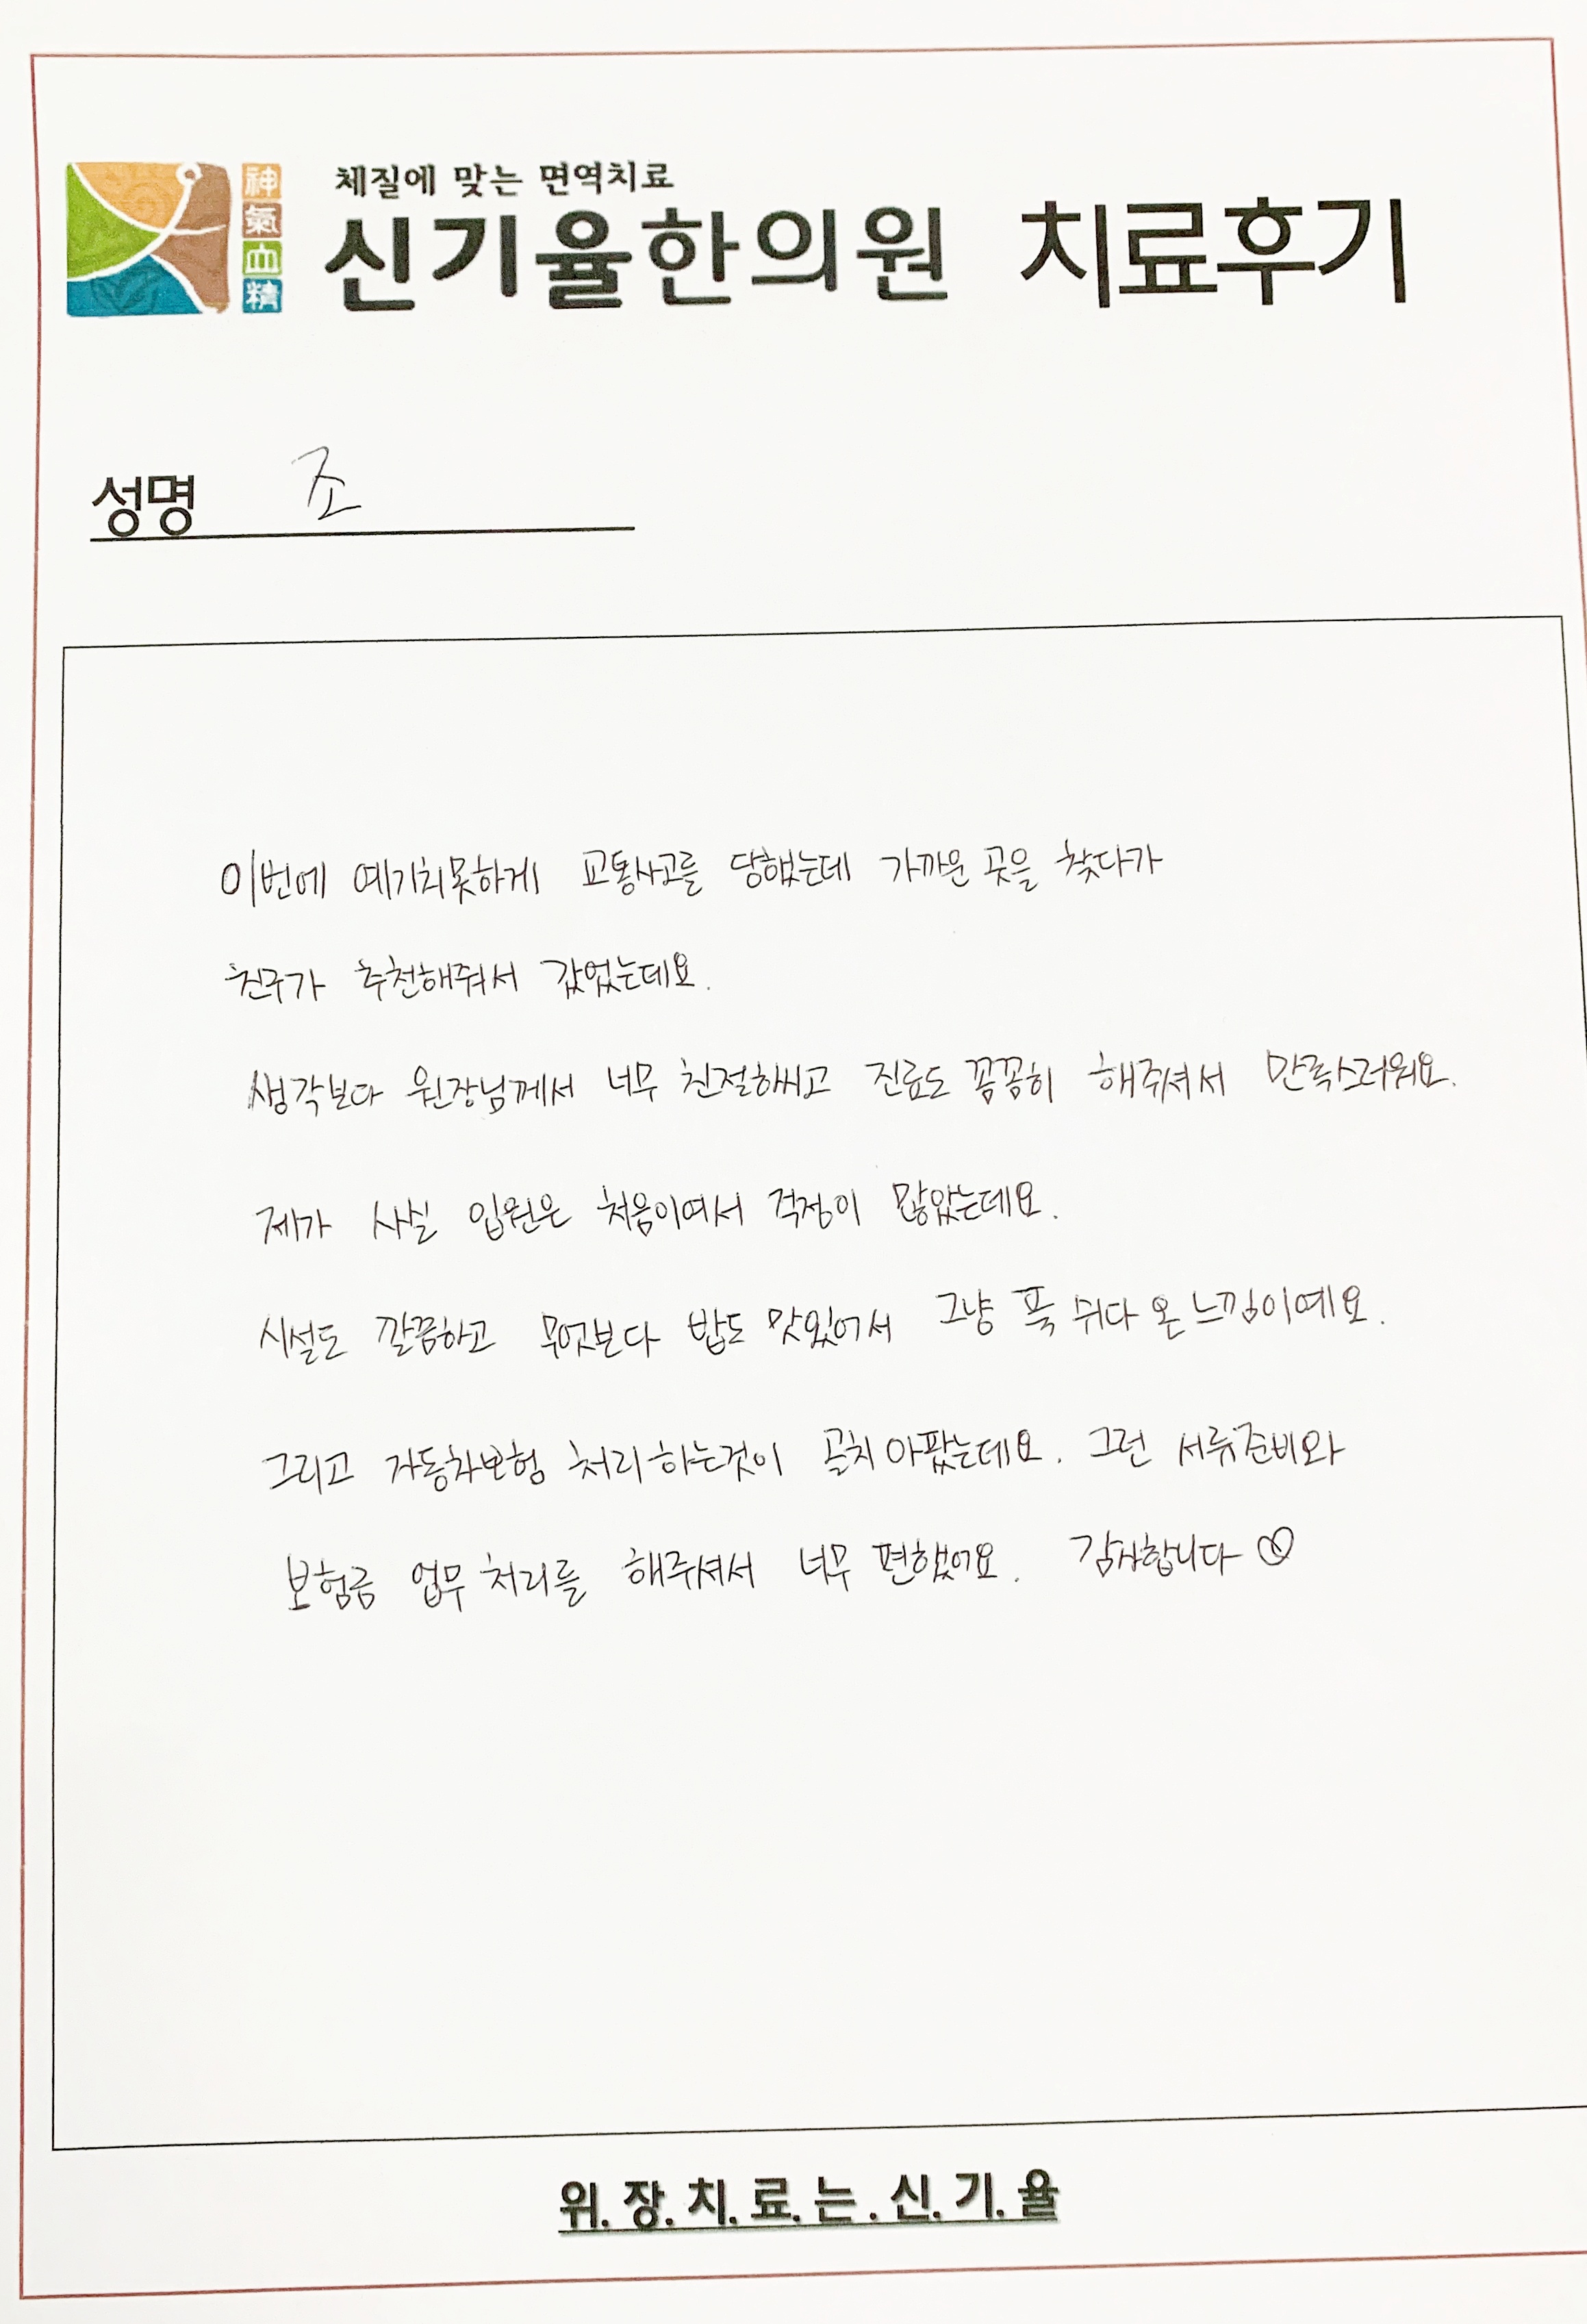 神
氣
血
精
체질에 맞는 면역치료
신기율한의원 치료후기
성명 조
이번에 예기치못하게 교통사고를 당했는데 가까운 곳을 찾다가
친구가 추천해줘서 갔었는데요.
생각보다 원장님께서 너무 친절하씨고 진료도 꼼꼼히 해주셔서 만족스러워요.
제가 사실 입원은 처음이여서 걱정이 많았는데요.
시설도 깔끔하고 무엇보다 밥도 맛있어서 그냥 푹 쉬다 온 느낌이예요.
그리고 자동차보험 처리하는것이 골치아팠는데요. 그런 서류준비와
보험금 업무처리를 해주셔서 너무 편했어요. 감사합니다♡
위.장.치.료.는.신.기.율